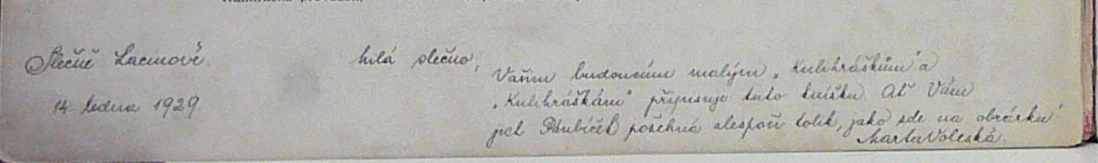 Slečně Lacinově.
14. ledna 1929.
Milá slečno,
Vašim budoucím malým „Kulihráškům" a
„Kulihráškám" připisuji tuto knížku. Ať Vám
jich požehná alespoň tolik, jako zde na obrázku!
Marta Voleská.